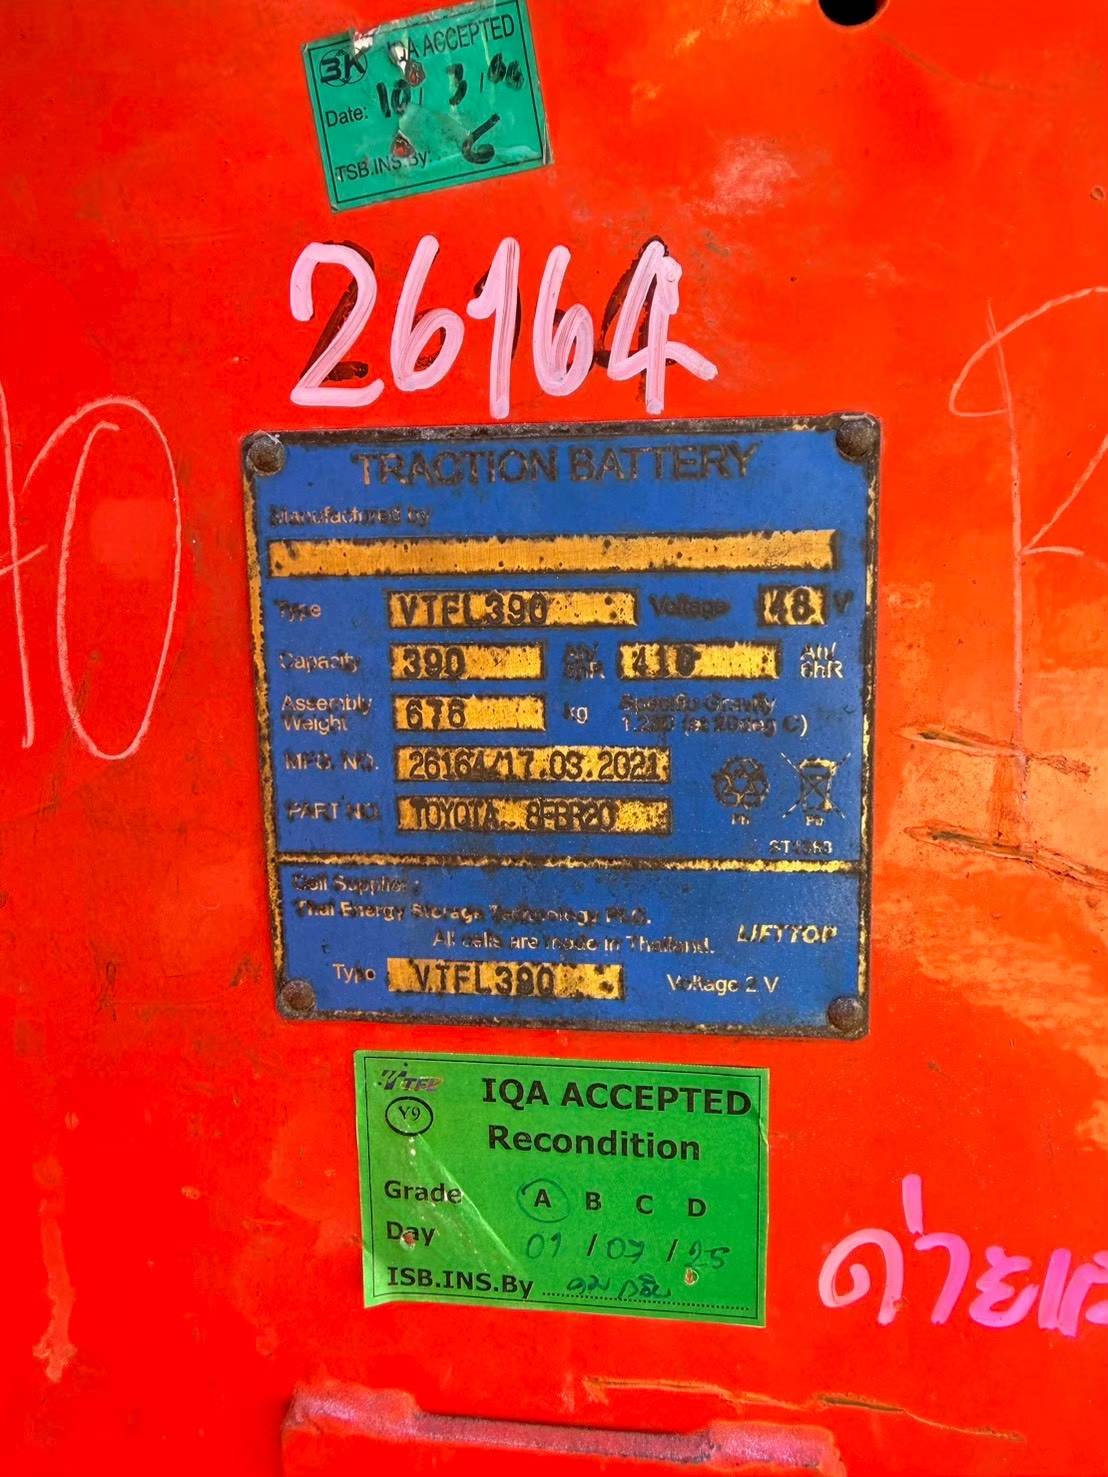 3K IQA ACCEPTED
Date: 10/3/66
TSB.INS By: 6
26164
TRACTION BATTERY
Manufactured by
Type VTFL390 Voltage 48 V
Capacity 390 Ah/ 5hR 416 Ah/ 6hR
Assembly Weight 676 kg Specific Gravity
1.280 (at 20deg C)
MFG. NO. 26164/17.03.2021
PART NO. TOYOTA 8FBR20
Pb Pb
Cell Supplier:
Thai Energy Storage Technology PLC.
All cells are made in Thailand. LIFTTOP
Type VTFL390 Voltage 2 V
Y9
IQA ACCEPTED
Recondition
Grade A B C D
Day 01/07/25
ISB.INS.By